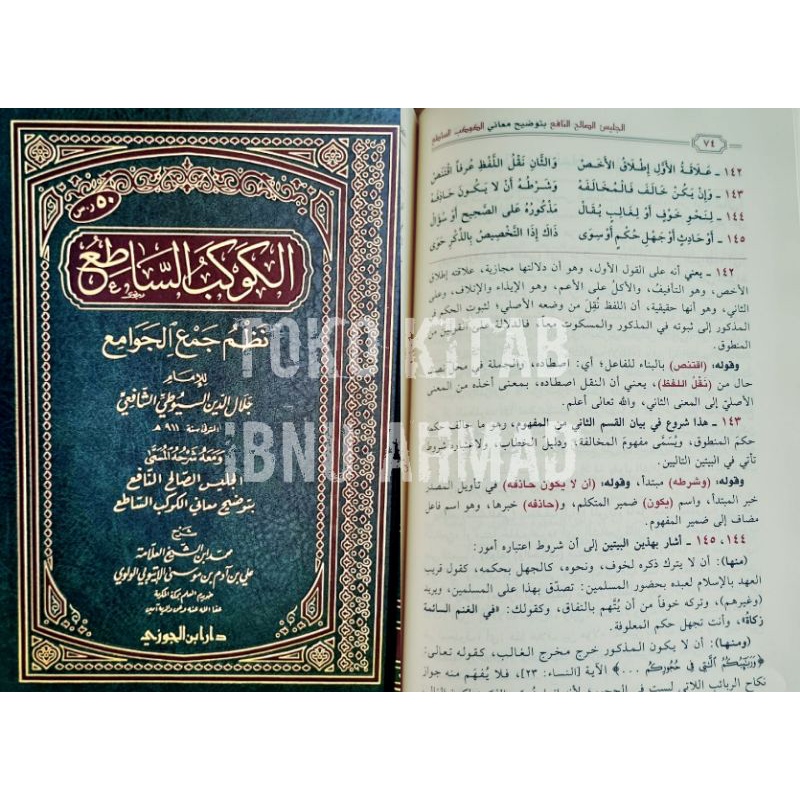 ٥٠ ر.س
الكوكب الساطع
نظم جمع الجوامع
للإمام
جلال الدين السيوطي الشافعي
المتوفى سنة ٩١١ هـ
ومعه شرحه المسمى
الجليس الصالح النافع
بتوضيح معاني الكوكب الساطع
شرح
محمد ابن الشيخ العلامة
علي بن آدم بن موسى الإتيوبي الولوي
خويدم العلم بمكة المكرمة
عفا الله عنه وعن والديه آمين
دار ابن الجوزي
الجليس الصالح النافع بتوضيح معاني الكوكب الساطع
٧٤
١٤٢ ـ عَلَاقَةُ الأَوَّلِ إِطْلَاقُ الأَخَصّْ وَالثَّانِ نَقْلُ اللَّفْظِ عُرْفاً اقْتَنَصْ
١٤٣ ـ وَإِنْ يَكُنْ خَالَفَ فَالْمُخَالَفَهْ وَشَرْطُهُ أَنْ لَا يَكُونَ حَاذِفَهْ
١٤٤ ـ لِنَحْوِ خَوْفٍ أَوْ لِغَالِبٍ يُقَالْ مَذْكُورُهُ عَلَى الصَّحِيحِ أَوْ سُؤَالْ
١٤٥ ـ أَوْ حَادِثٍ أَوْ جَهْلِ حُكْمٍ أَوْ سِوَى ذَاكَ إِذَا التَّخْصِيصَ بِالذِّكْرِ حَوَى
١٤٢ ـ يعني أنه على القول الأول، وهو أن دلالتها مجازية، علاقته إطلاق
الأخص، وهو التأفيف، والأكل على الأعم، وهو الإيذاء والإتلاف، وعلى
الثاني، وهو أنها حقيقية، أن اللفظ نُقِلَ من وضعه الأصلي؛ لثبوت الحكم في
المذكور إلى ثبوته في المذكور والمسكوت معاً، فالدلالة على القولين من
المنطوق.
وقوله: (اقتنص) بالبناء للفاعل؛ أي: اصطاده، والجملة في محل نصب
حال من (نَقْلُ اللفظ)، يعني أن النقل اصطاده، بمعنى أخذه من المعنى
الأصليّ إلى المعنى الثاني، والله تعالى أعلم.
١٤٣ ـ هذا شروع في بيان القسم الثاني من المفهوم، وهو ما خالف حكمه
حكمَ المنطوق، ويُسَمَّى مفهومَ المخالفة، ودليلَ الخطاب، ولاعتباره شروط
تأتي في البيتين التاليين.
وقوله: (وشرطه) مبتدأ، وقوله: (أن لا يكون حاذفه) في تأويل المصدر
خبر المبتدأ، واسم (يكون) ضمير المتكلم، و(حاذفه) خبرها، وهو اسم فاعل
مضاف إلى ضمير المفهوم.
١٤٤، ١٤٥ ـ أشار بهذين البيتين إلى أن شروط اعتباره أمور:
(منها): أن لا يترك ذكره لخوف، ونحوه، كالجهل بحكمه، كقول قريب
العهد بالإسلام لعبده بحضور المسلمين: تصدّق بهذا على المسلمين، ويريد
(وغيرهم)، وتركه خوفاً من أن يُتَّهم بالنفاق، وكقولك: «في الغنم السائمة
زكاة»، وأنت تجهل حكم المعلوفة.
(ومنها): أن لا يكون المذكور خرج مخرج الغالب، كقوله تعالى:
﴿وَرَبَٰٓئِبُكُمُ ٱلَّٰتِى فِى حُجُورِكُم ...﴾ الآية [النساء: ٢٣]، فلا يُفهَم منه جواز
نكاح الربائب اللاتي ليست في الحجور
TOKO KITAB
IBNU AHMAD